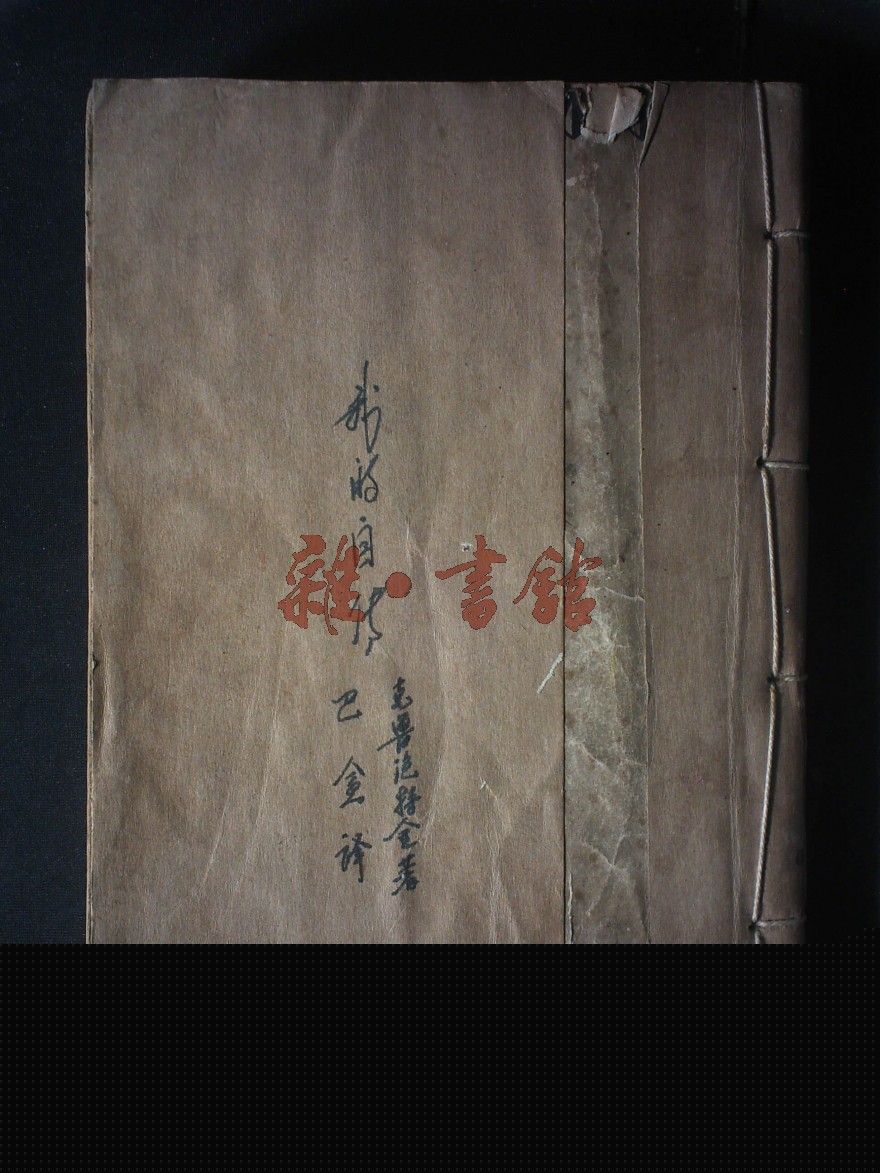 我的自传
克鲁泡特金著
巴金译
雜·書館